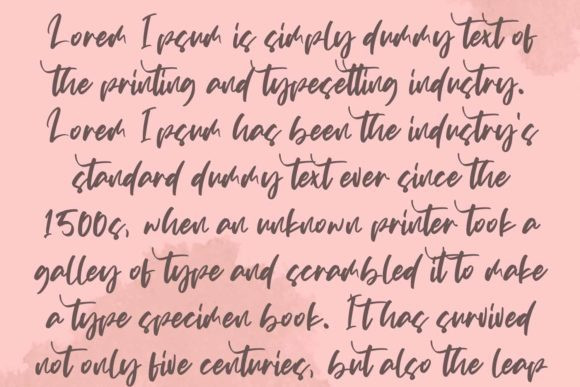 Lorem Ipsum is simply dummy text of
the printing and typesetting industry.
Lorem Ipsum has been the industry's
standard dummy text ever since the
1500s, when an unknown printer took a
galley of type and scrambled it to make
a type specimen book. It has survived
not only five centuries, but also the leap